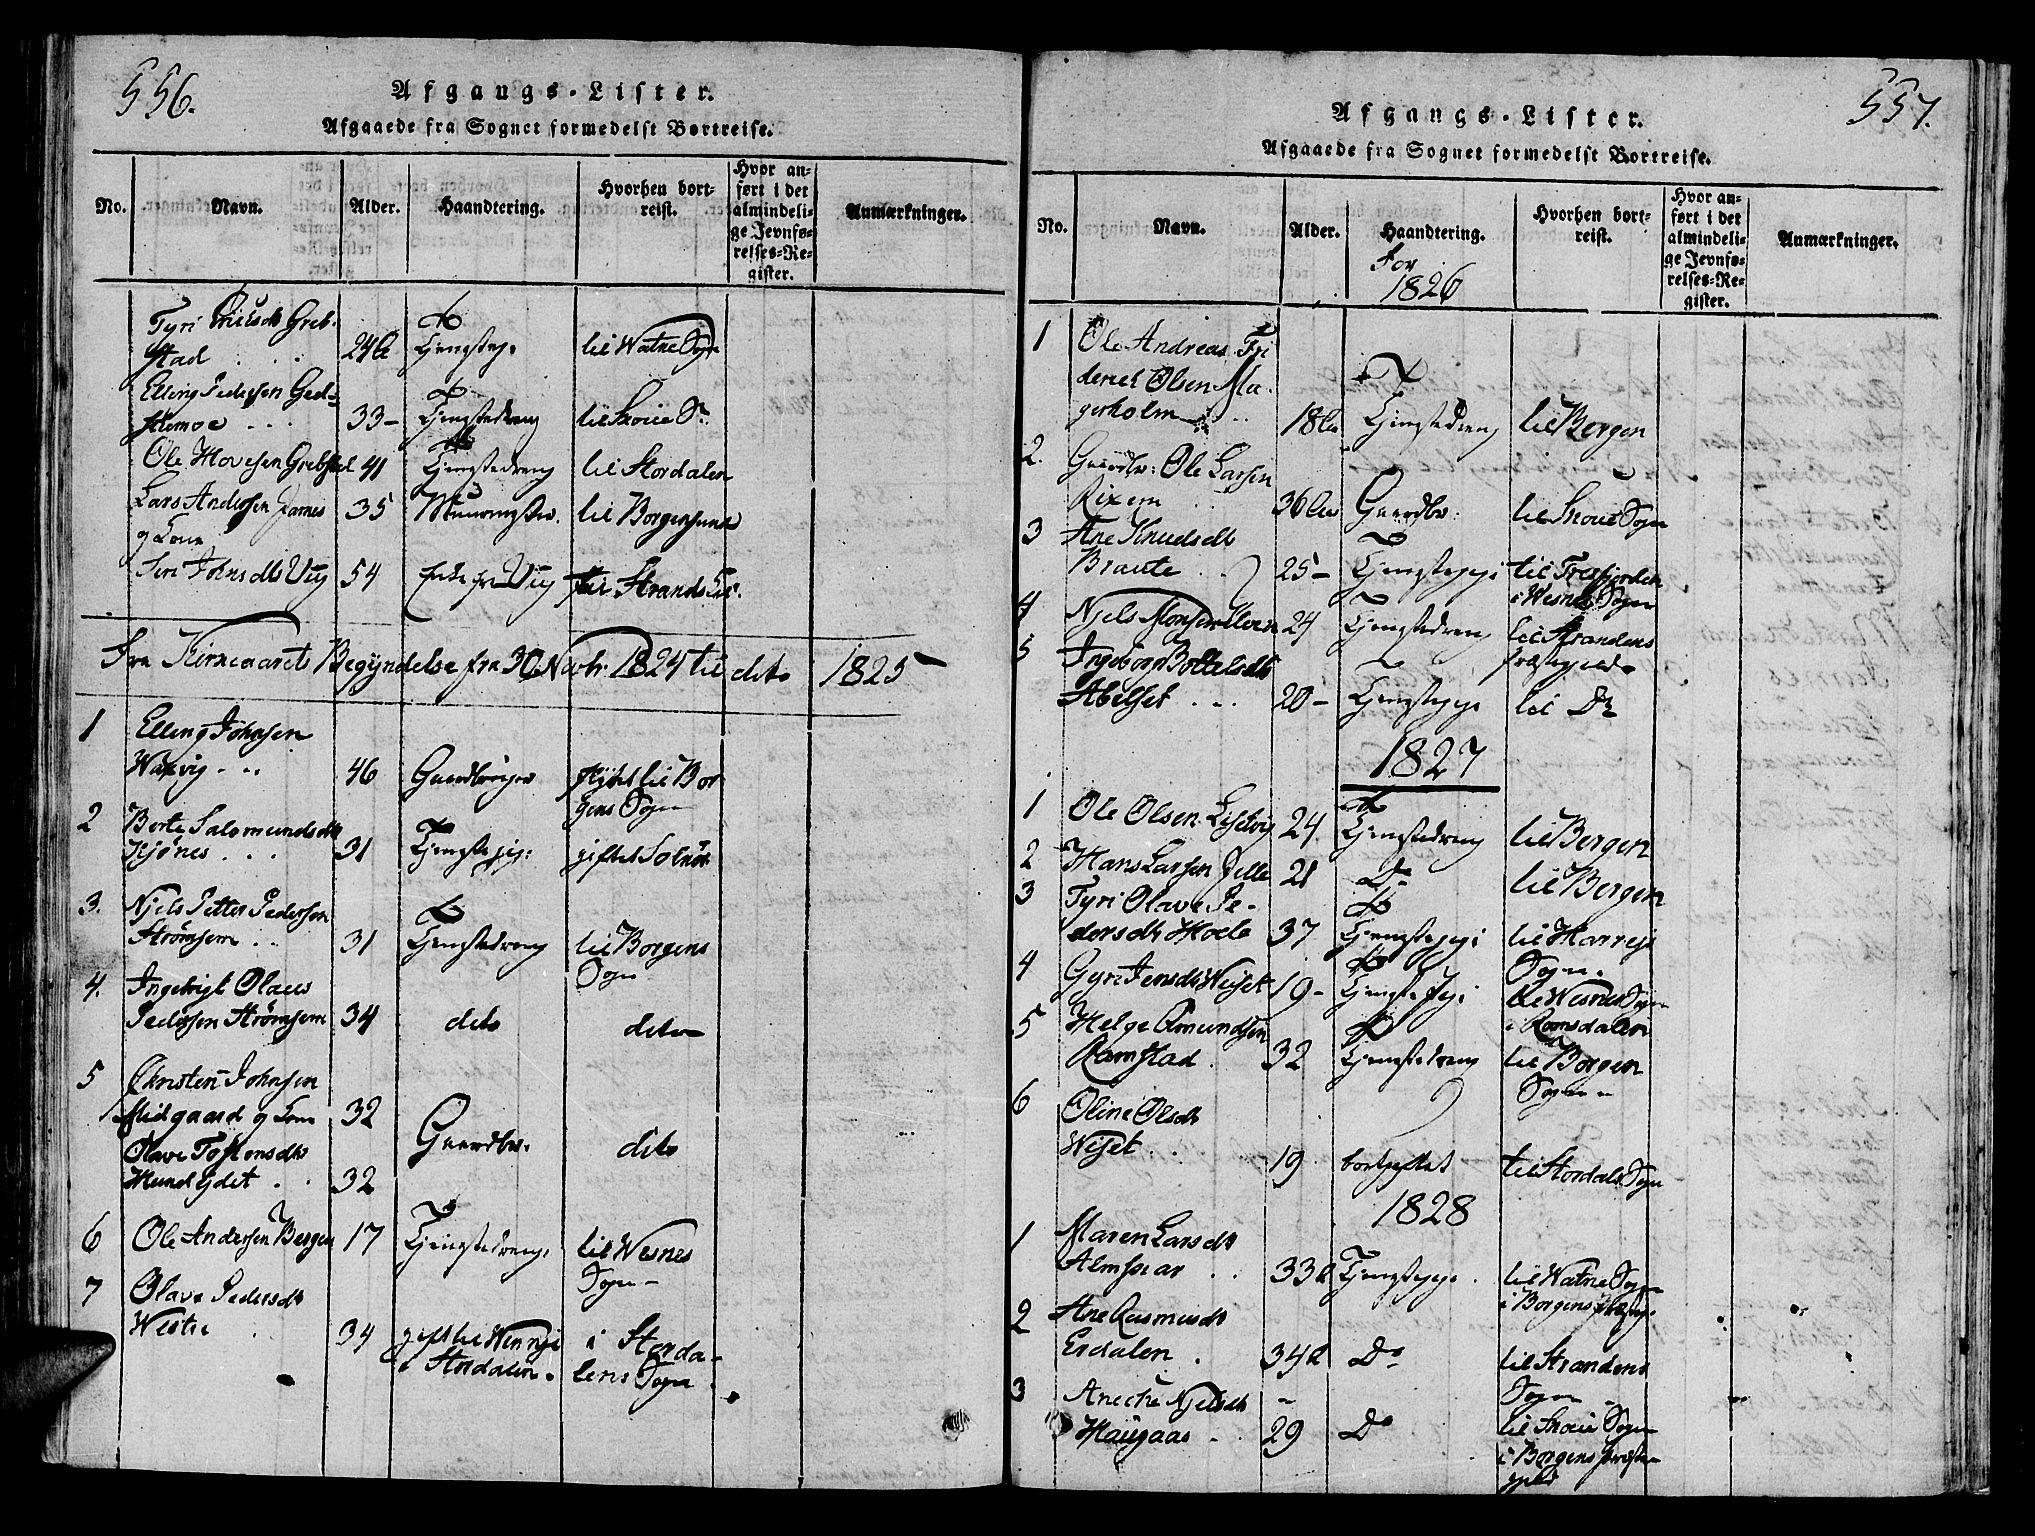 556.
Afgangs-Lister.
Afgaaede fra Sognet formedelst Bortreise.
No. Navn. Alder. Haandtering. Hvorhen bortreist. Hvor anført i det almindelige Jevnførelses-Register. Anmærkninger.
Tyri Grebstad 24 til Watne Sogn
Elling Pedersen 33 - Tjenstedreng til Skoue S.
Ole 41 Tjenstedreng til Stordalen
Lars Andersen 35 til Borgensund
og Kone
Siri Johnsdtr Viig 54 Enke fra Viig til Strands
Fra Kirkeaarets Begyndelse fra 30 Novbr: 1824 til dito 1825
1 Elling Johnsen
46 Gaardbruger flyttet til Borgens Sogn
2 Berte Salomundsdtr
31 Tjenstepige: giftet Solnør
3. Njels Petter Pedersen
Strømsem 31 Tjenstedreng til Borgens
Sogn
4. Ingebrigt Olaus
Pedersen Strømsem 34 dito dito
5 Christen Johnsen
Midgaard og Kone 32 Gaardbr. dito
Olave Tostensdtr
32
6 Ole Andersen Bergen 17 Tjenstedreng. til Wesnes
Sogn
7 Olave Pedersdtr
Westre 34 gift til i Stordalens Sogn
i Stordalen.
557.
Afgangs-Lister.
Afgaaede fra Sognet formedelst Bortreise.
No. Navn. Alder. Haandtering. Hvorhen bortreist. Hvor anført i det almindelige Jevnførelses-Register. Anmærkninger.
For
1826
1 Ole Andreas Friderich Olsen Magerholm 18 Tjenstedreng til Bergen
2 Gaardbr: Ole Larsen
Rixem 36 Gaardbr: til Skoue Sogn
3 Ane Knudsdtr
Braute 25 - Tjenstepige til Tresfjorden
i Wesnes Sogn
4 Njels 24 Tjenstedreng til Strandens
Præstegield
5 Ingeborg
Abelset 20 - Tjenstepige til Do
1827
1 Ole Olsen 24 Tjenstedreng til Bergen
2 Hans Larsen 21 Do til Bergen
3 Tyri Olave Pedersdtr Hoele 37 Tjenstepige til
Sogn.
4 Gyri Jensdtr Weset 19 - Tjenstepige til Wesnes Sogn
i Romsdalen
5 Helge Amundsen
Ramstad 32 Tjenstedreng til Borgen
Sogn
6 Oline Olsdtr
Weset 19 bortgiftet til Stordals Sogn
1828
1 Maren Larsdtr
33 Tjenstepige til Watne Sogn
i Borgens
2 Ane Rasmusdtr
Erdalen 34 Do til Strandens
Sogn
3 Njelsdtr
Haugaas 29 Do til Skoue Sogn
i Borgens Præstegjeld